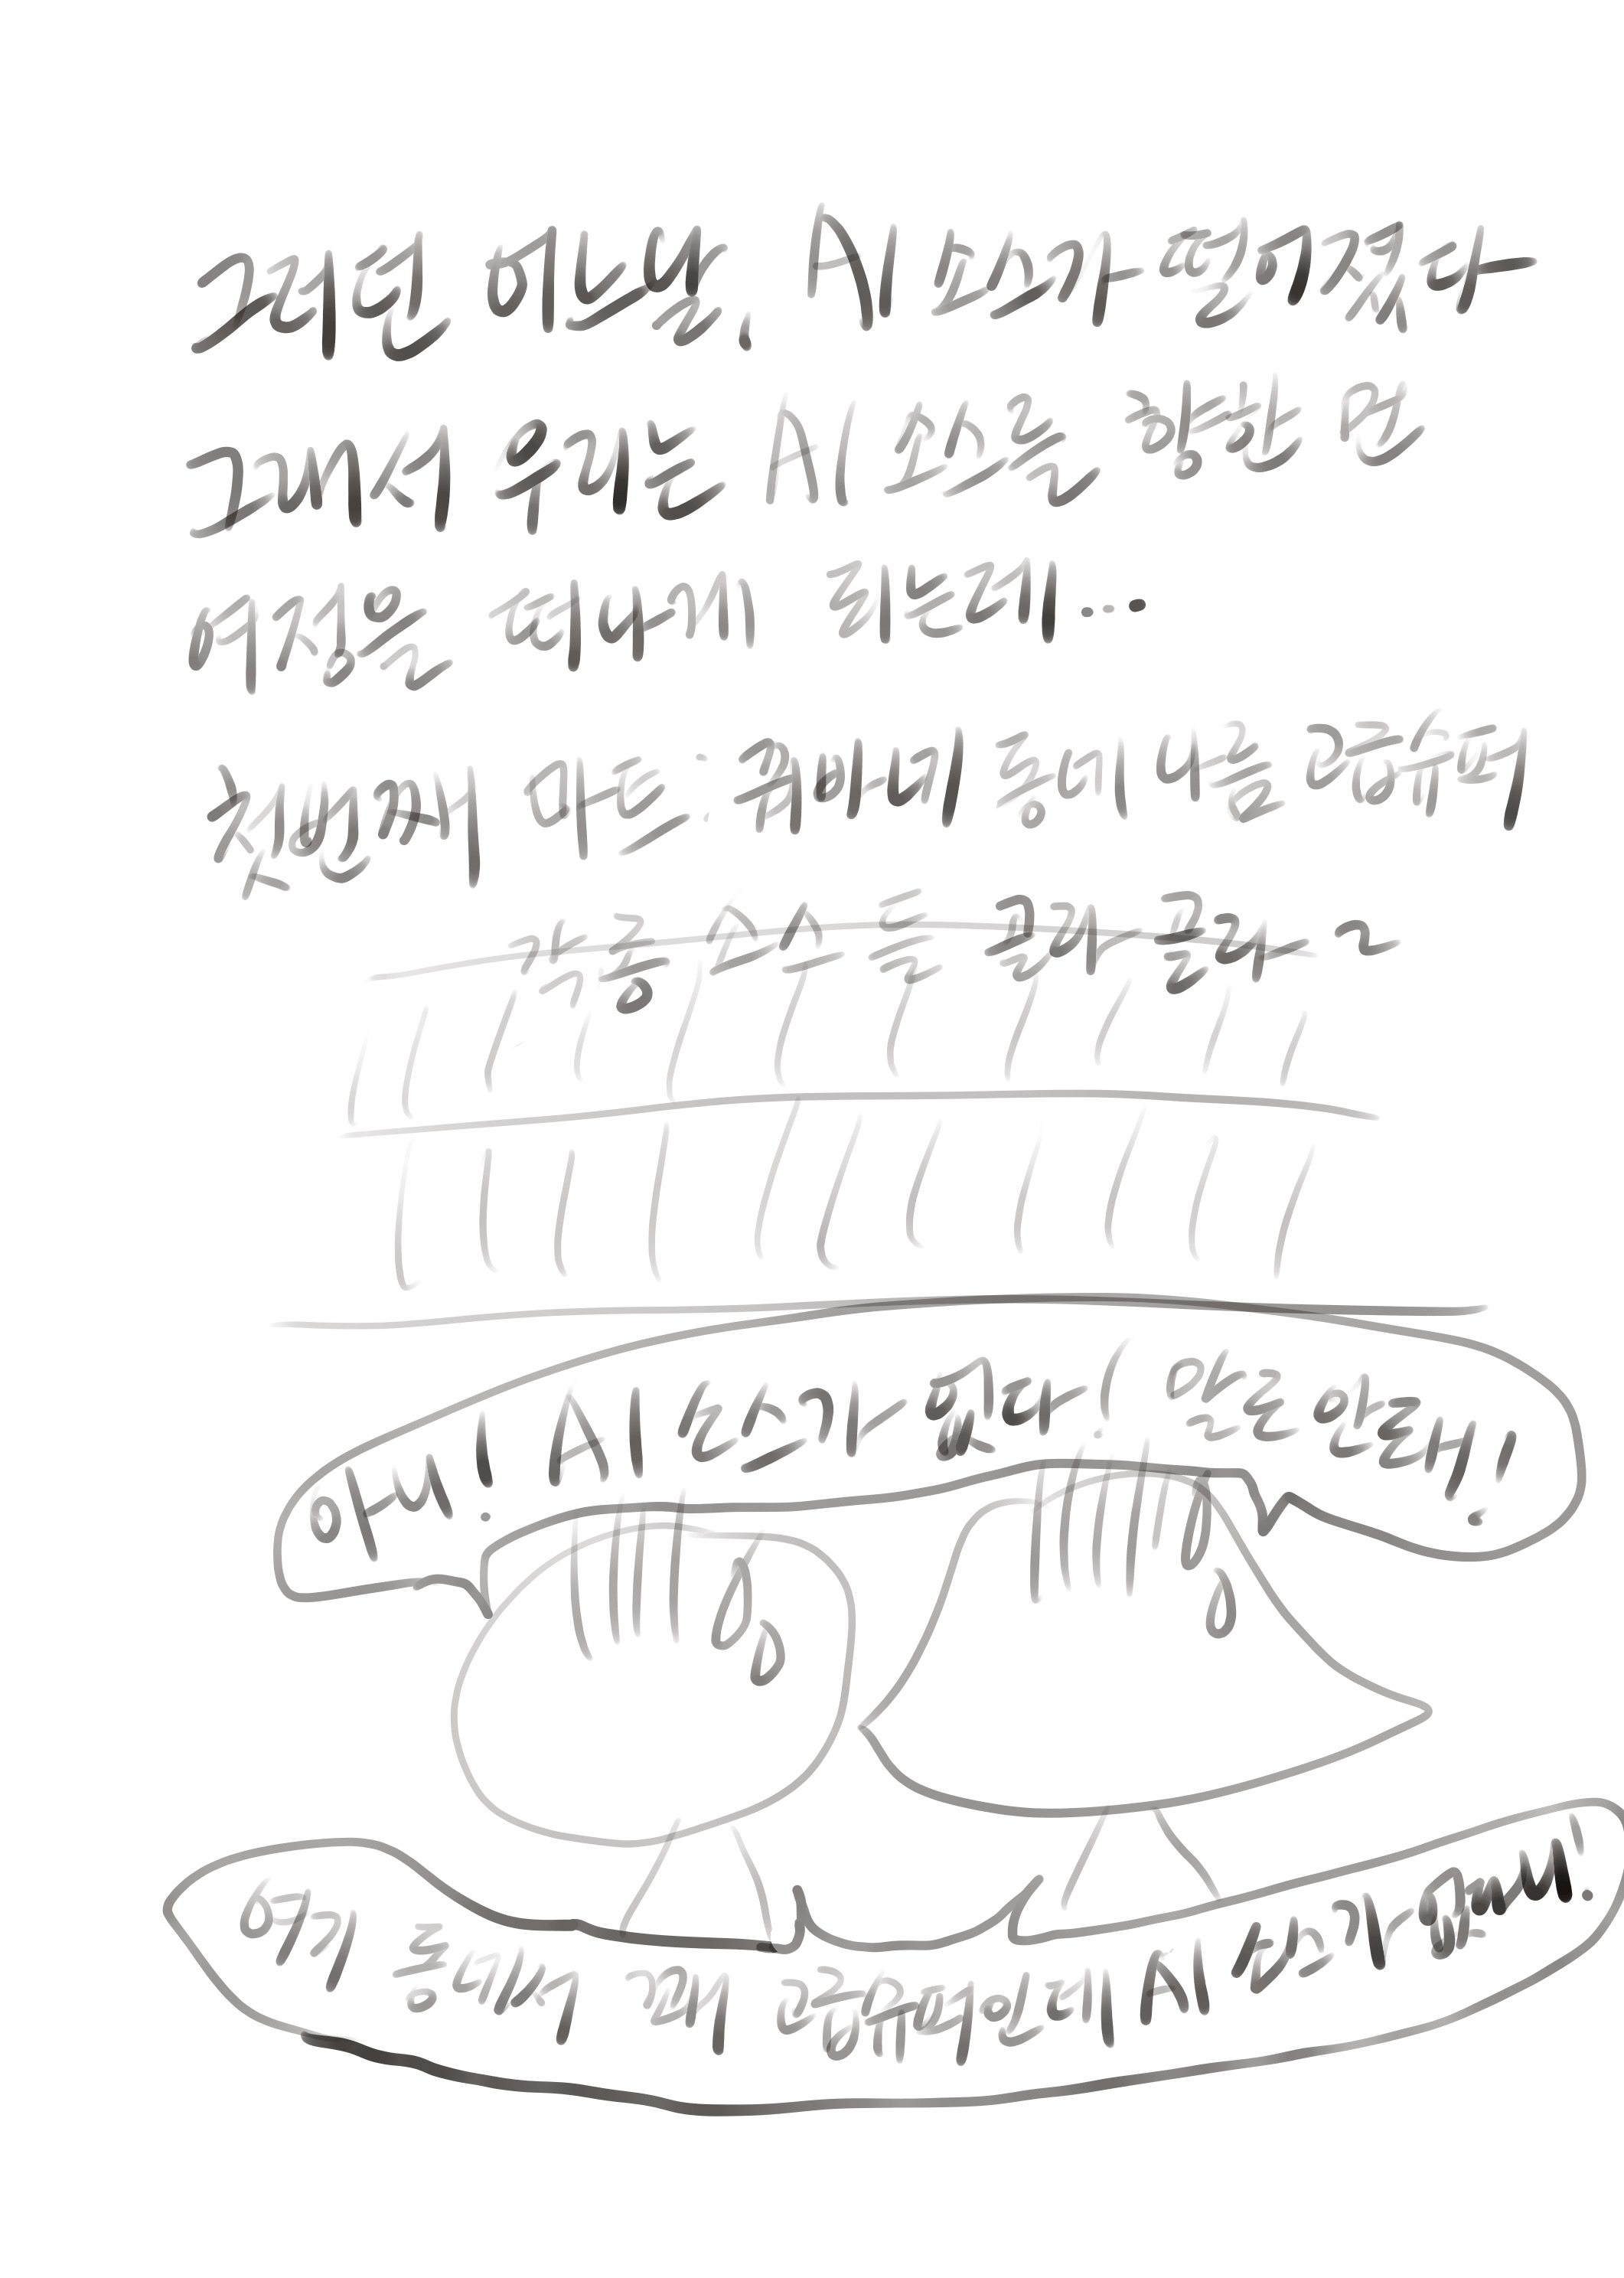 그러던 어느날, AI 소스가 필요해졌다
그래서 우리는 AI 소스를 향한 먼
여정을 떠나게 되는데...
첫번째 마트: 캐비넷 동네 나름 고급슈퍼
각종 소스들 골라골라~
아니! AI 소스가 없다! 말도 안돼!
여기 동네에서 꽤 고급슈퍼인데 AI 소스가 없다니!